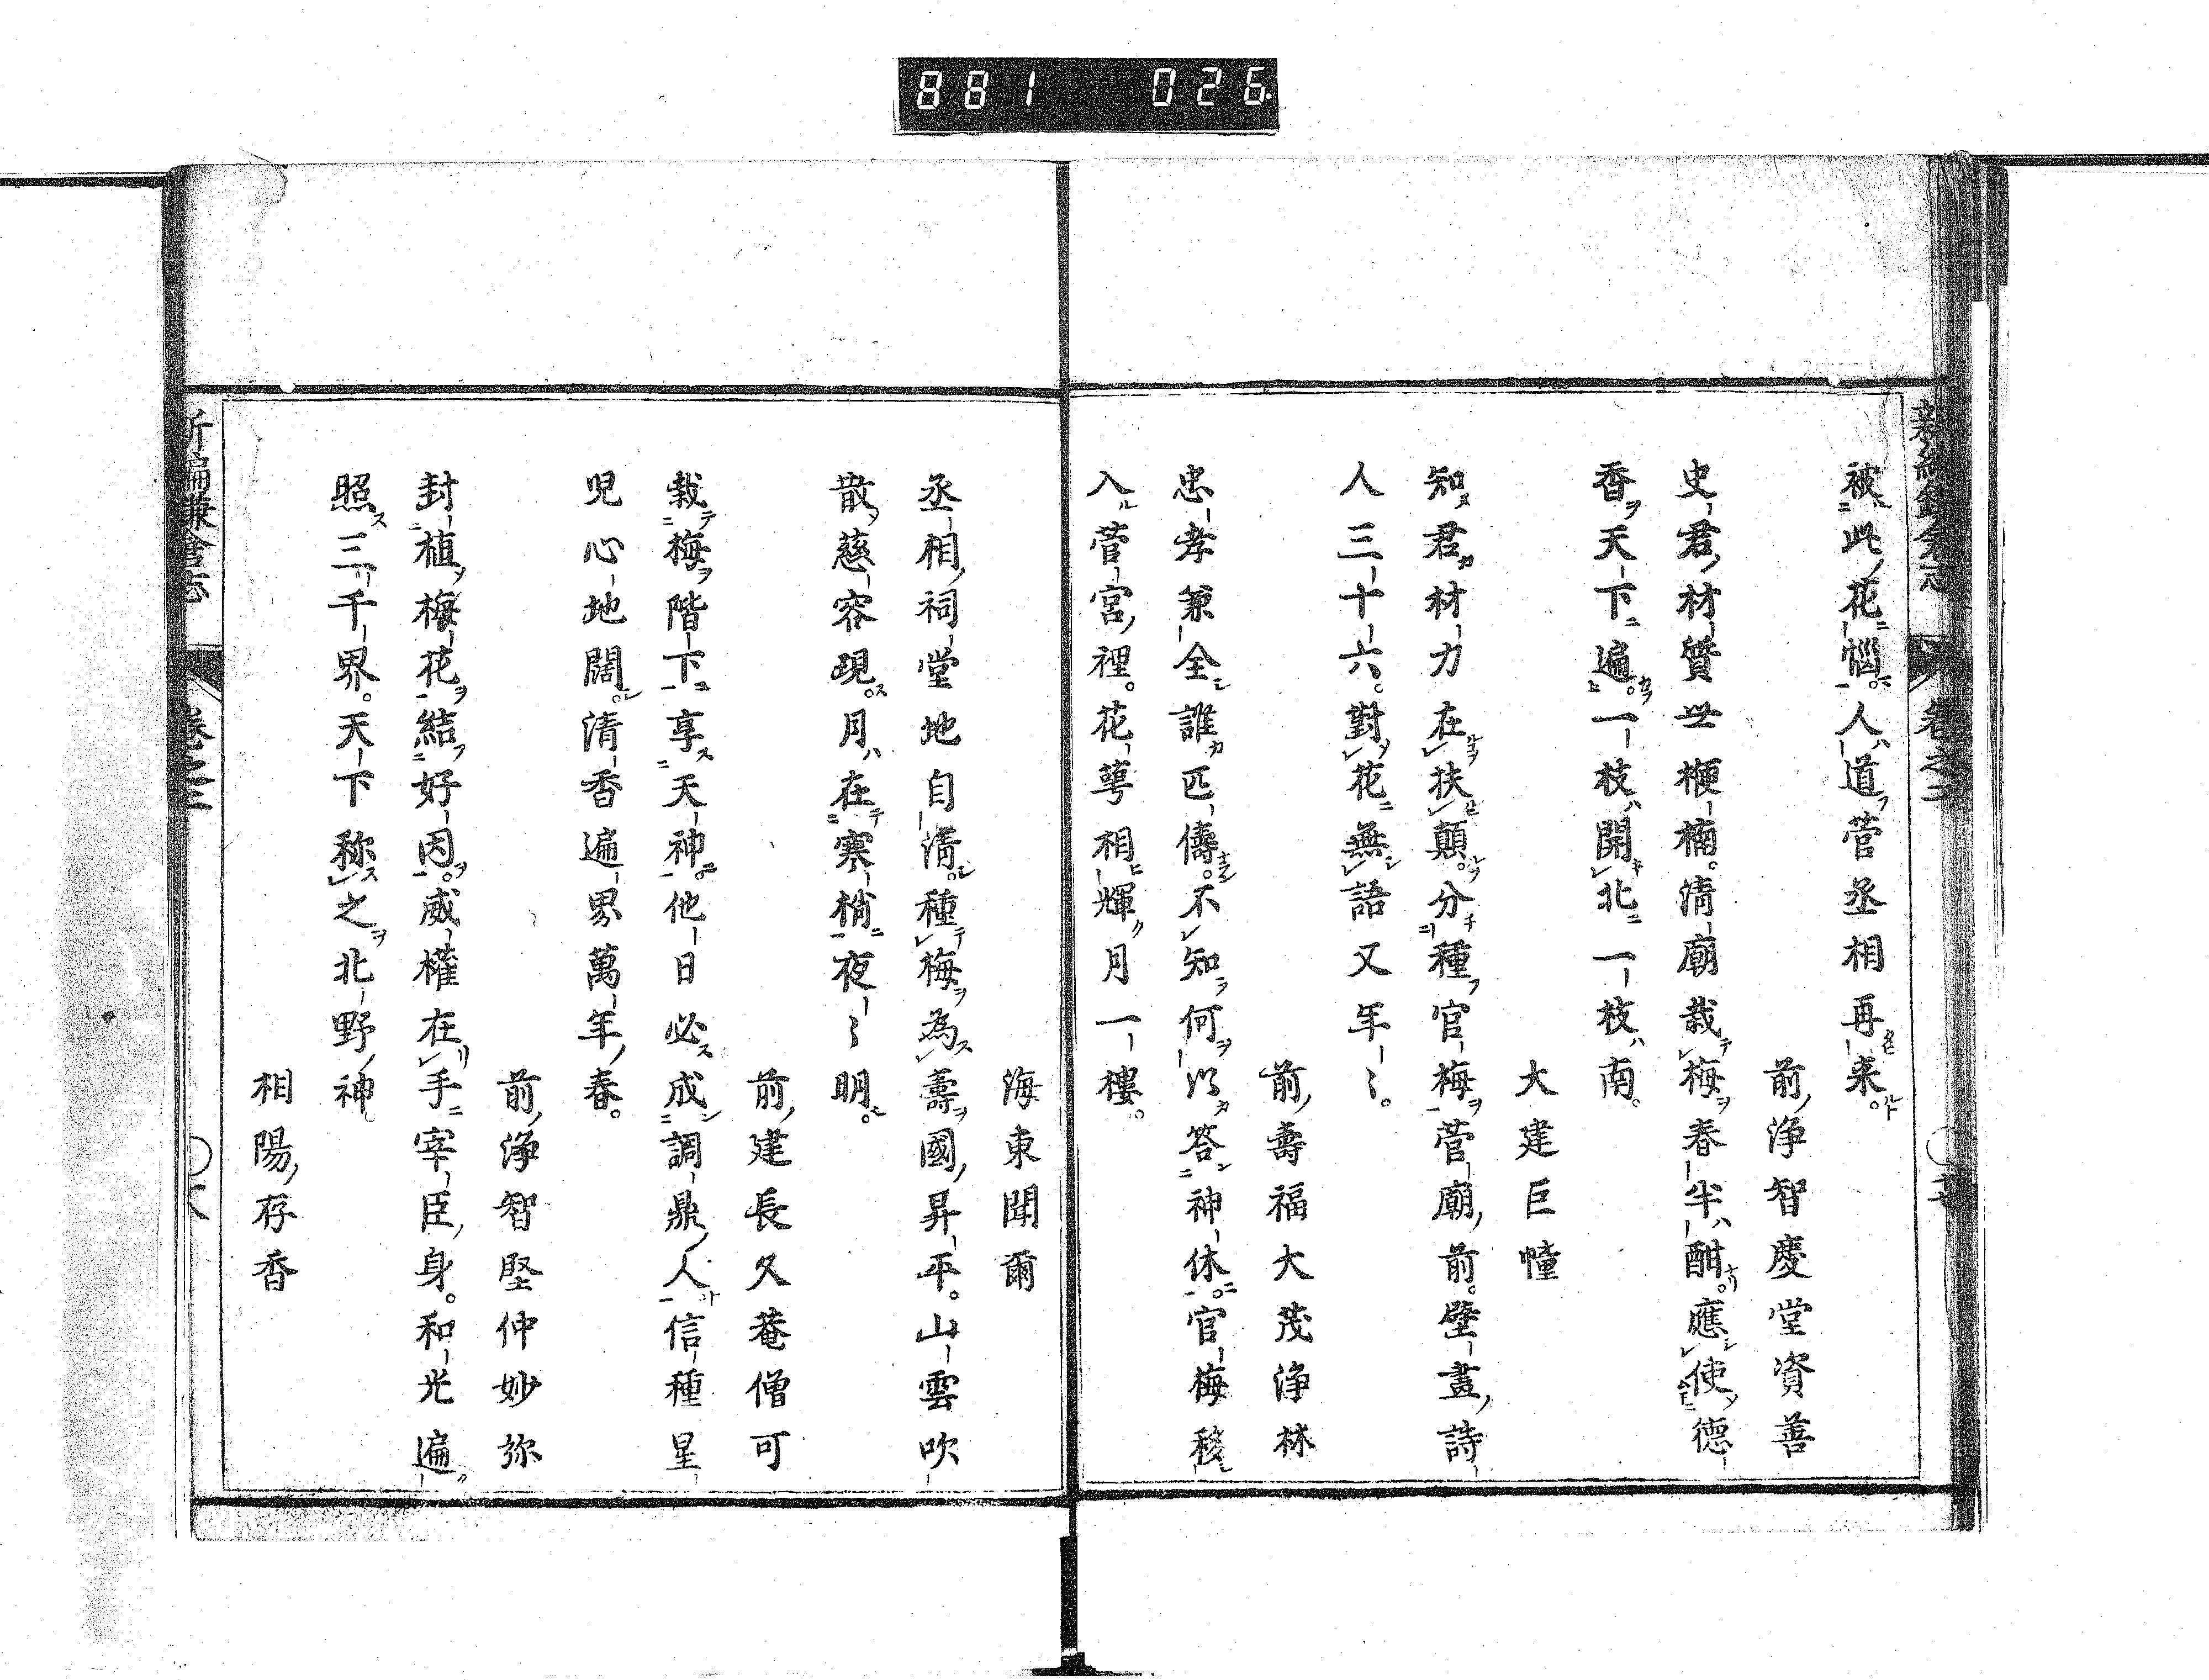 881 026
被此花惱。人道菅丞相再来。
前浄智慶堂資善
史君材質世楩楠。清廟栽梅春半酣。應使德
香天下遍。一枝開北一枝南。
大建巨幢
知君材力在扶顛。分種官梅菅廟前。壁畫詩
人三十六。對花無語又年〻。
前壽福大茂浄林
忠孝兼全誰匹儔。不知何以答神休。官梅移
入菅宮裡。花萼相輝月一樓。
海東聞爾
丞相祠堂地自清。種梅為壽國昇平。山雲吹
散慈容現。月在寒梢夜〻明。
前建長久菴僧可
栽梅階下享天神。他日必成調鼎人。信種星
児心地闊。清香遍界萬年春。
前浄智堅仲妙弥
封植梅花結好因。威權在手宰臣身。和光遍
照三千界。天下称之北野神
相陽存香
卷之三